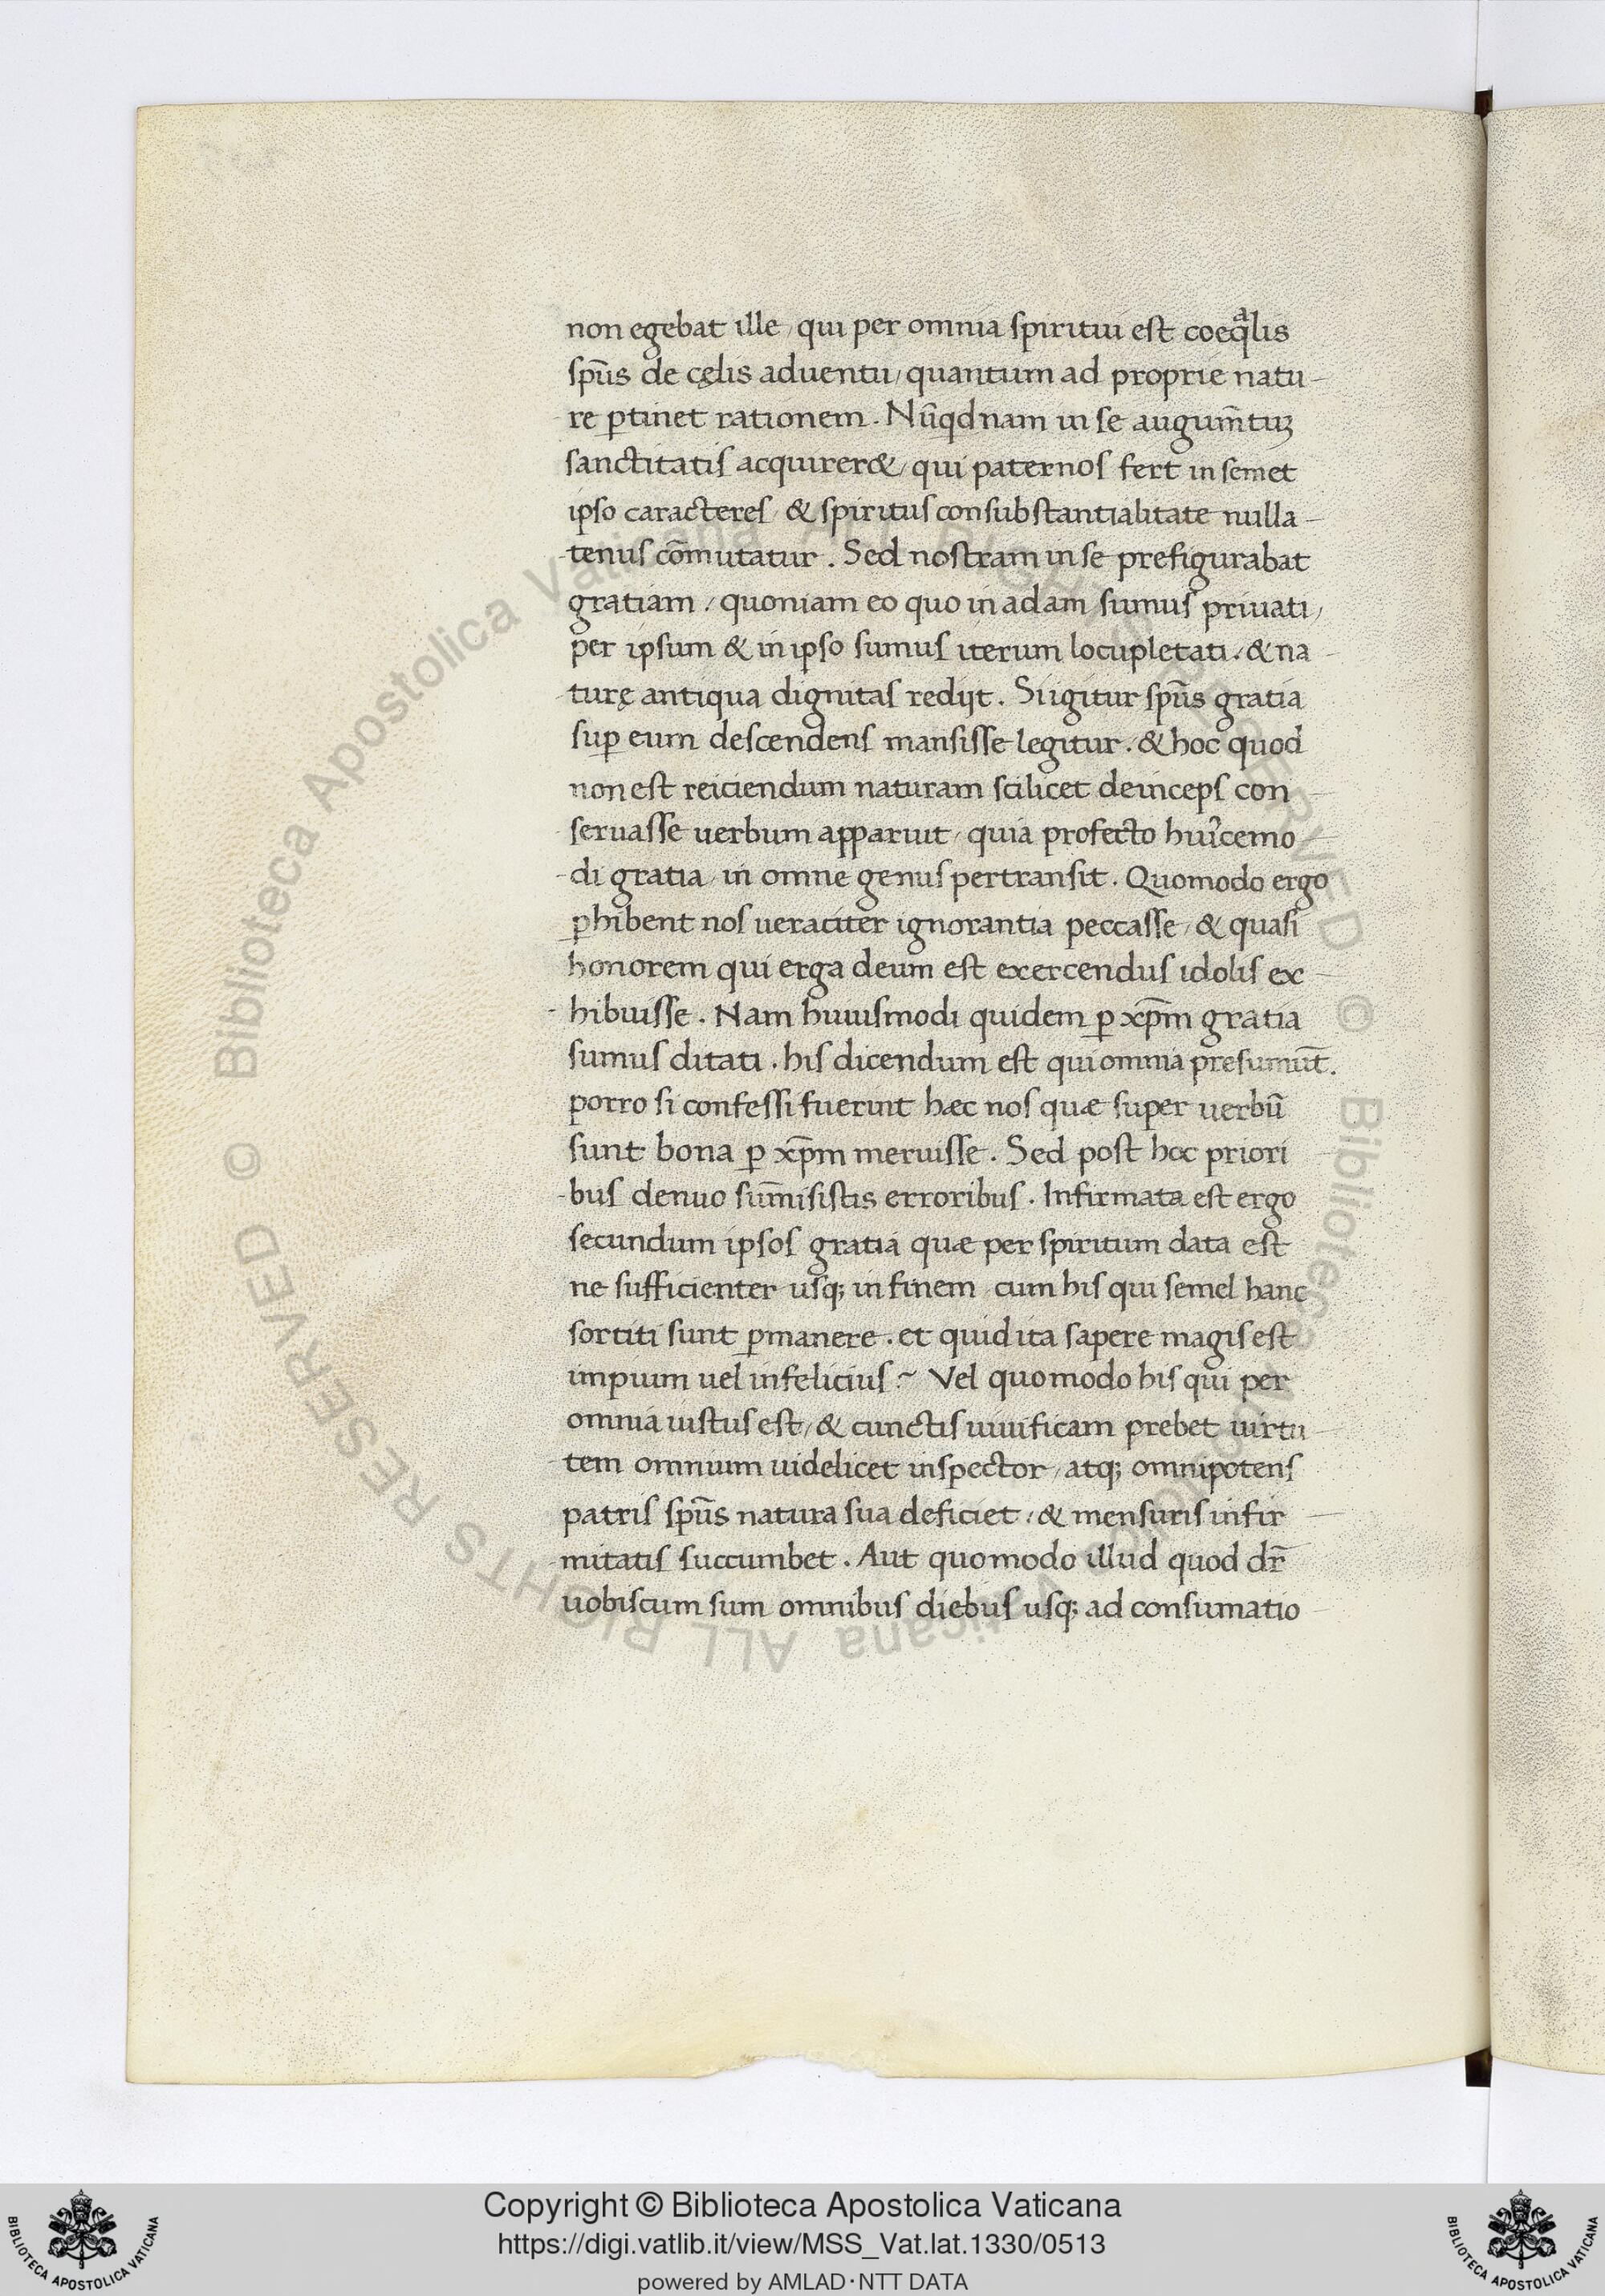 non egebat ille, qui per omnia spiritui est coeqᵃlis
sp̄us de cęlis aduentu, quantum ad proprie natu-
re ꝑtinet rationem. Nūqd nam in se augum̄tuꝫ
sanctitatis acquirer&, qui paternos fert in semet
ipso caracteres, & spiritus consubstantialitate nulla-
tenus cōmutatur. Sed nostram in se prefigurabat
gratiam, quoniam eo quo in adam sumus priuati,
per ipsum & in ipso sumus iterum locupletati, & na-
turę antiqua dignitas redijt. Si igitur sp̄us gratia
suꝑ eum descendens mansisse legitur, & hoc quod
non est reiciendum naturam scilicet deinceps con-
seruasse uerbum apparuit, quia profecto huiꝰcemo-
di gratia, in omne genus pertransit. Quomodo ergo
ꝑhibent nos ueraciter ignorantia peccasse, & quasi
honorem qui erga deum est exercendus idolis ex-
hibuisse. Nam huiusmodi quidem ꝑ xp̄m gratia
sumus ditati. his dicendum est qui omnia presumūt.
porro si confessi fuerint hæc nos quæ super uerbū
sunt bona ꝑ xp̄m meruisse. Sed post hæc priori
bus denuo sum̄isistis erroribus. Infirmata est ergo
secundum ipsos gratia quæ per spiritum data est
ne sufficienter usq; in finem, cum his qui semel hanc
sortiti sunt ꝑmanere. et quid ita sapere magis est
impium uel infelicius? Vel quomodo his qui per
omnia iustus est, & cunctis uiuificam prebet uirtu-
tem omnium uidelicet inspector, atq; omnipotens
patris sp̄us natura sua deficiet, & mensuris infir-
mitatis succumbet. Aut quomodo illud quod dr̄
uobiscum sum omnibus diebus usq; ad consumatio-
© Biblioteca Apostolica Vaticana ALL RIGHTS RESERVED © Biblioteca Apostolica Vaticana ALL RIGHTS RESERVED
Copyright © Biblioteca Apostolica Vaticana
https://digi.vatlib.it/view/MSS_Vat.lat.1330/0513
powered by AMLAD·NTT DATA
BIBLIOTECA APOSTOLICA VATICANA
BIBLIOTECA APOSTOLICA VATICANA